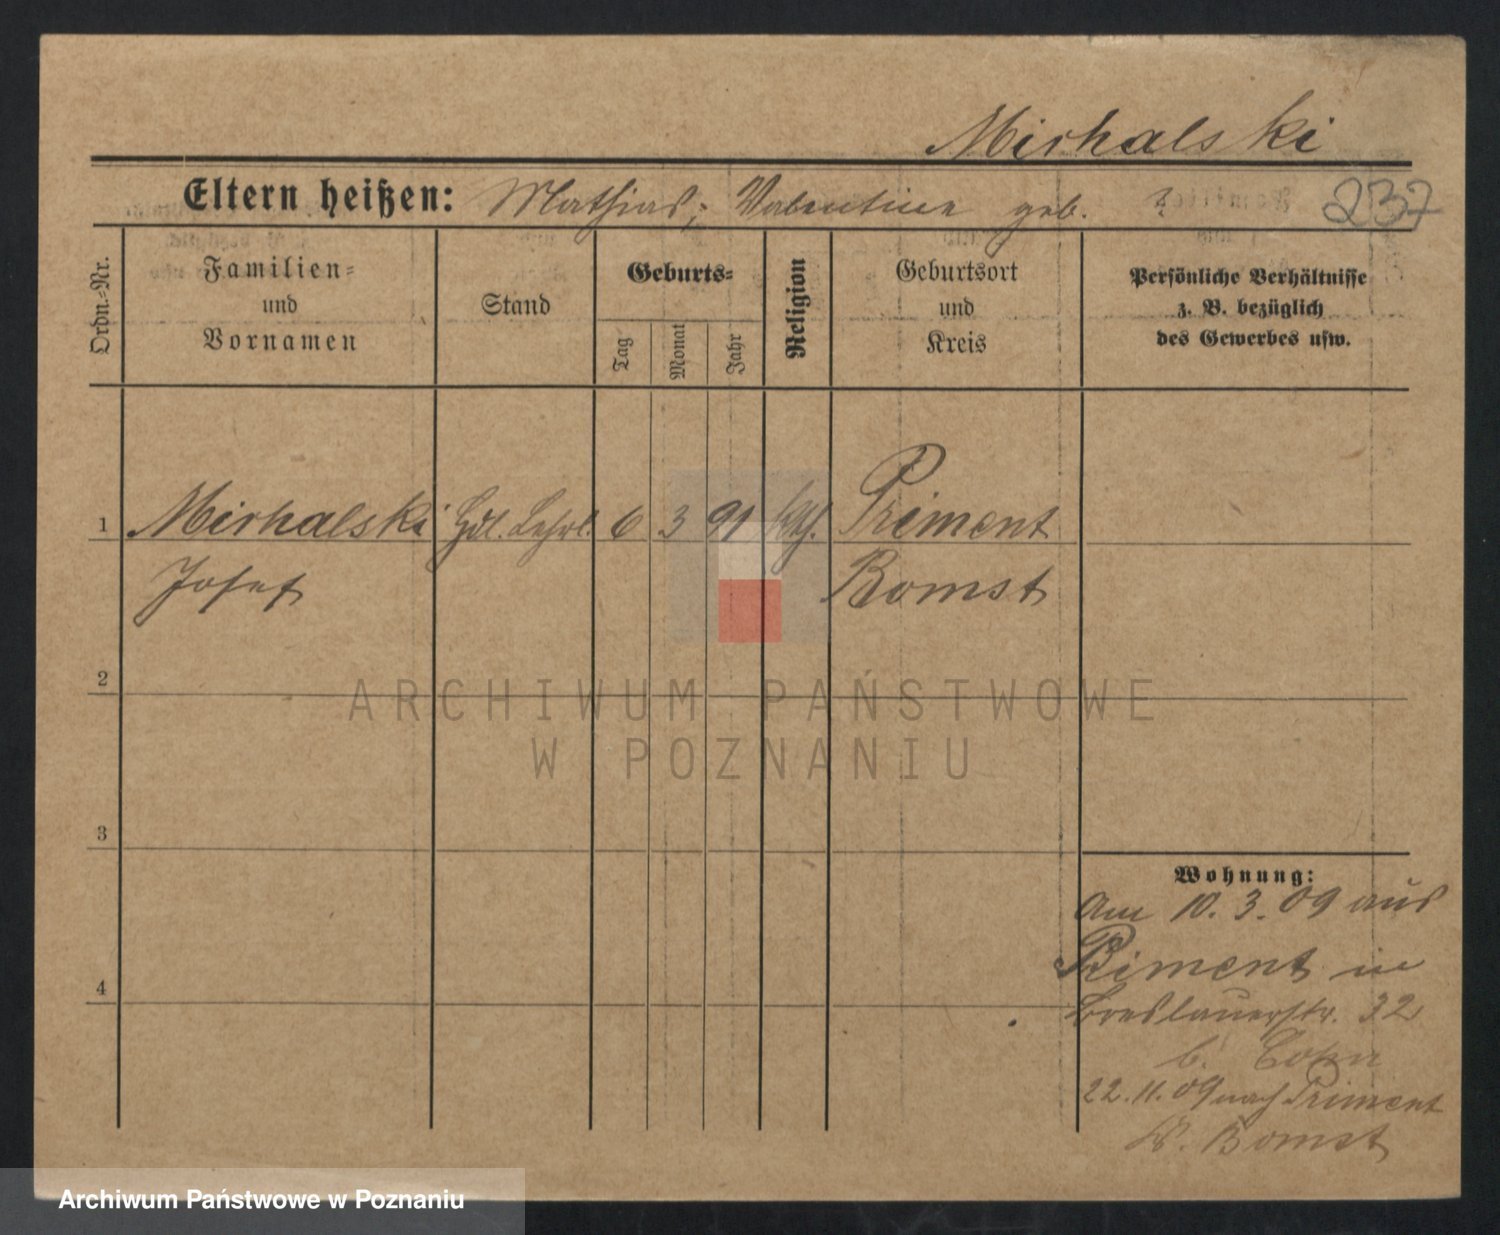 Mirhalski
Eltern heißen: Mathias; Valentine geb. ?
237
Ordn.-Nr.
Familien-
und
Vornamen
Stand
Geburts-
Tag
Monat
Jahr
Religion
Geburtsort
und
Kreis
Persönliche Verhältnisse
z. B. bezüglich
des Gewerbes usw.
1 Mirhalski Hdl. Lehrl. 6 3 91 kth. Priment
Josef Bomst
2
3
4
Wohnung:
Am 10. 3. 09 aus
Priment in
Breslauerstr. 32
b. Cohn
22. 11. 09 nach Priment
K. Bomst
ARCHIWUM PAŃSTWOWE
W POZNANIU
Archiwum Państwowe w Poznaniu